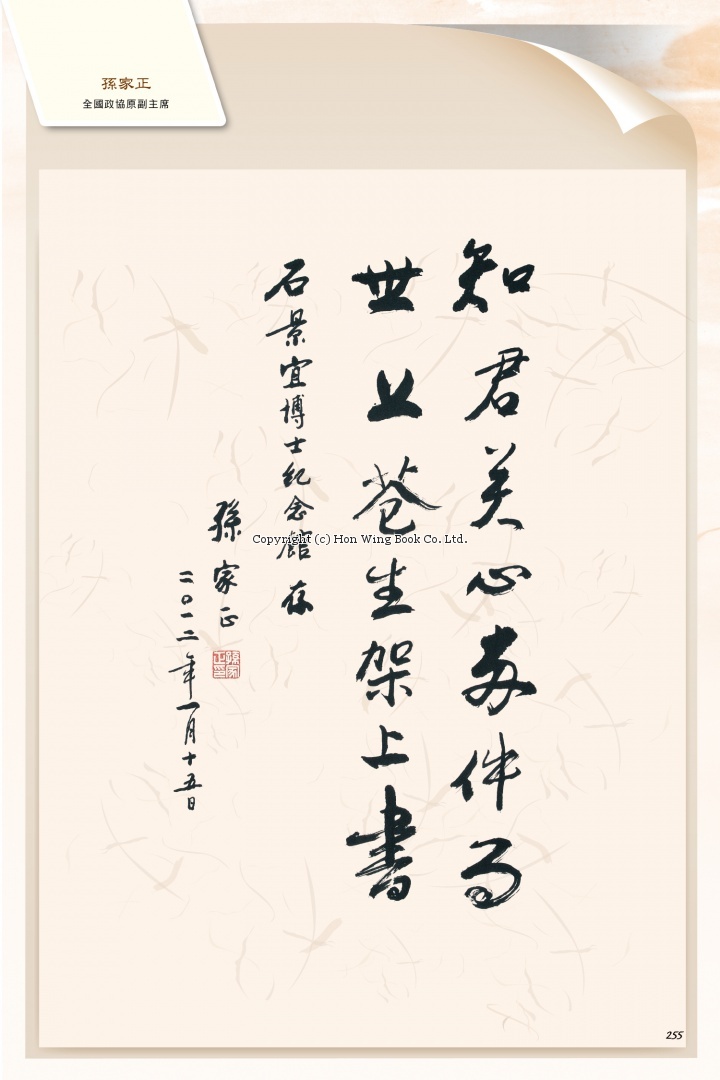 孫家正
全國政協原副主席
知君关心两件事
世上苍生架上書
石景宜博士纪念館存
孫家正
二〇一二年一月十五日
孫家正印
Copyright (c) Hon Wing Book Co. Ltd.
255